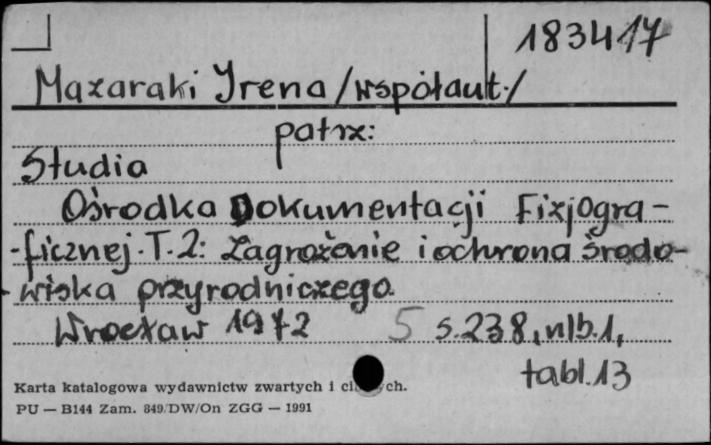 183417
Mazaraki Irena /współaut./
patrz:
Studia
Ośrodka Dokumentacji Fizjogra-
-ficznej. T. 2: Zagrożenie i ochrona środo-
-wiska przyrodniczego.
Wrocław 1972 5 s. 238, nlb. 1,
tabl. 13
Karta katalogowa wydawnictw zwartych i ch.
PU — B144 Zam. 849/DW/On ZGG — 1991